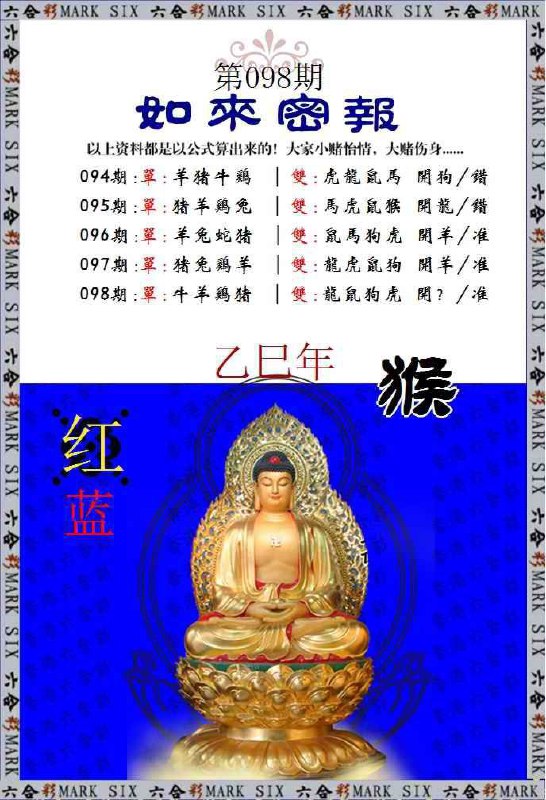 六合彩MARK SIX 六合彩MARK SIX 六合彩MARK SIX 六合彩MARK SIX
第098期
如來密報
以上资料都是以公式算出来的！大家小赌怡情，大赌伤身......
094期:單:羊猪牛鷄 | 雙:虎龍鼠馬 開狗/錯
095期:單:猪羊鷄兔 | 雙:馬虎鼠猴 開龍/錯
096期:單:羊兔蛇猪 | 雙:鼠馬狗虎 開羊/准
097期:單:猪兔鷄羊 | 雙:龍虎鼠狗 開羊/准
098期:單:牛羊鷄猪 | 雙:龍鼠狗虎 開?/准
乙巳年
猴
红
蓝
六合彩MARK SIX 六合彩MARK SIX 六合彩MARK SIX 六合彩MARK SIX